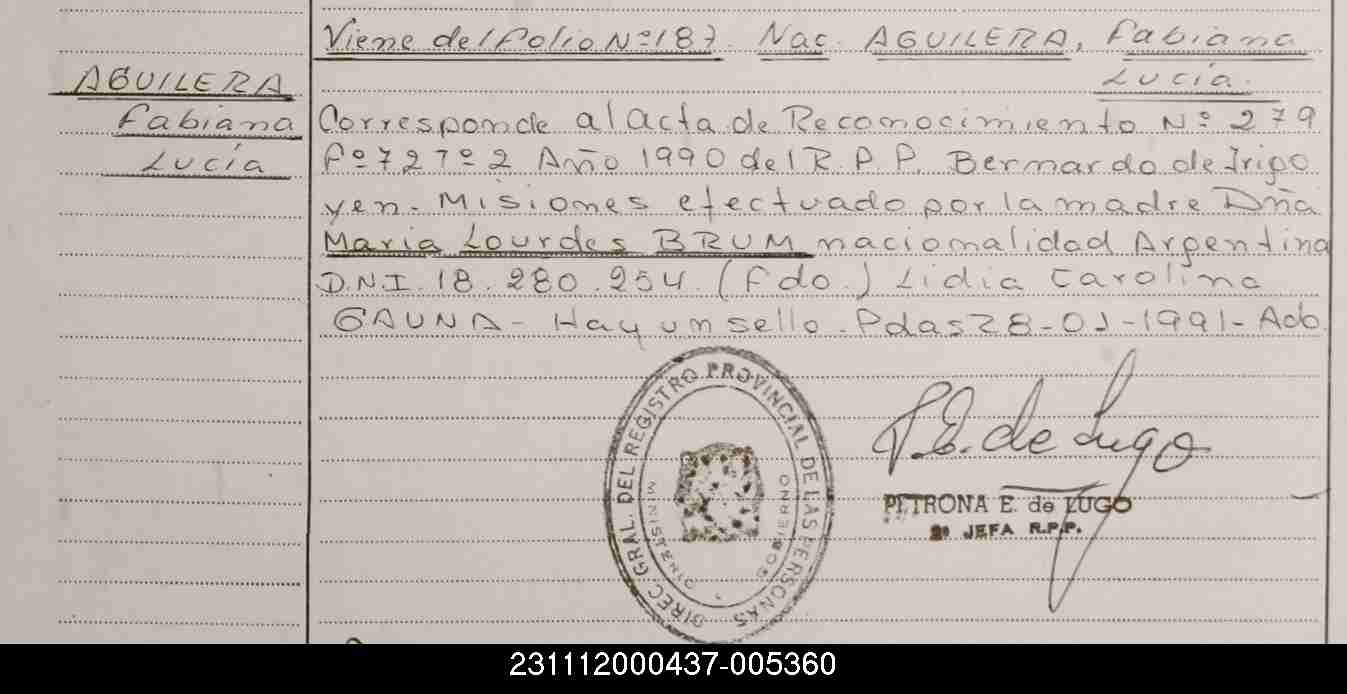 Viene del folio Nº 187. Nac. AGUILERA, Fabiana
Lucía.
AGUILERA
Fabiana
Lucía
Corresponde al acta de Reconocimiento Nº 279
Fº 72 Tº 2 Año 1990 del R.P.P. Bernardo de Irigo
yen - Misiones efectuado por la madre Dña
Maria Lourdes BRUM nacionalidad Argentina
D.N.I. 18.280.254. (Fdo.) Lidia Carolina
GAUNA - Hay un sello. Pdas 28-01-1991-
DIREC. GRAL. DEL REGISTRO PROVINCIAL DE LAS PERSONAS
MINISTERIO
GOBIERNO
P.E. de Lugo
PETRONA E. de LUGO
2º JEFA R.P.P.
231112000437-005360